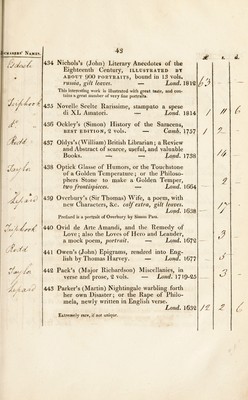 42
PURCHASERS' NAMES.
434 Nichols's (John) Literary Anecdotes of the
Eighteenth Century, ILLUSTRATED BY
ABOUT 900 PORTRAITS, bound in 13 vols.
russia, gilt leaves. — Lond. 1812 63
This interesting work is illustrated with great taste, and con-
tains a great number of very fine portraits.
Triphook 435 Novelle Scelte Rarissime, stampato a spese
di XL Amatori. — Lond. 1814 1 11 6
do 436 Ockley's (Simon) History of the Saracens,
BEST EDITION, 2 vols. — Camb. 1757 1 2 -
Rodd 437 Oldys's (William) British Librarian; a Review
and Abstract of scarce, useful, and valuable
Books. — — Lond. 1738 - 14 -
Taylor 438 Optick Glasse of Humors, or the Touchstone
of a Golden Temperature; or the Philoso-
phers Stone to make a Golden Temper,
two frontispieces. — Lond. 1664 - 2 -
439 Overbury's (Sir Thomas) Wife, a poem, with
new Characters, &c. calf extra, gilt leaves.
Lond. 1638 - 17 -
Prefixed is a portrait of Overbury by Simon Pass.
Triphook 440 Ovid de Arte Amandi, and the Remedy of
Love; also the Loves of Hero and Leander,
a mock poem, portrait. — Lond. 1672 - 3 -
Rodd 441 Owen's (John) Epigrams, rendred into Eng-
lish by Thomas Harvey. — Lond. 1677 - 5 -
Taylor 442 Pack's (Major Richardson) Miscellanies, in
verse and prose, 2 vols. — Lond. 1719-25 - 3 -
443 Parker's (Martin) Nightingale warbling forth
her own Disaster; or the Rape of Philo-
mela, newly written in English verse.
Lond. 1632 12 2 6
Extremely rare, if not unique.